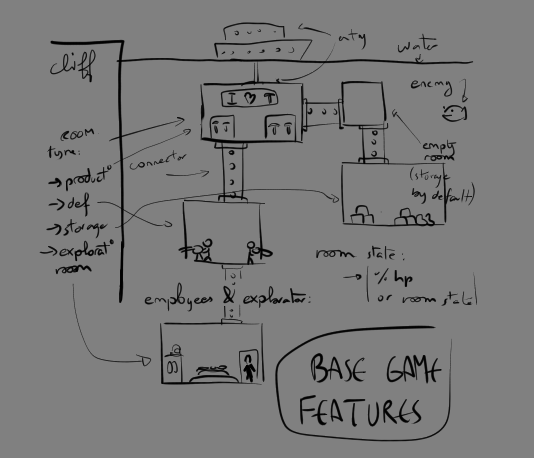 water
cliff
enemy
I ♥ T
room
type:
→ product°
→ def
→ storage
→ explorat°
room
connector
empty
room
(storage
by default)
room state:
→ % hp
or room state
employees & explorator:
BASE GAME
FEATURES